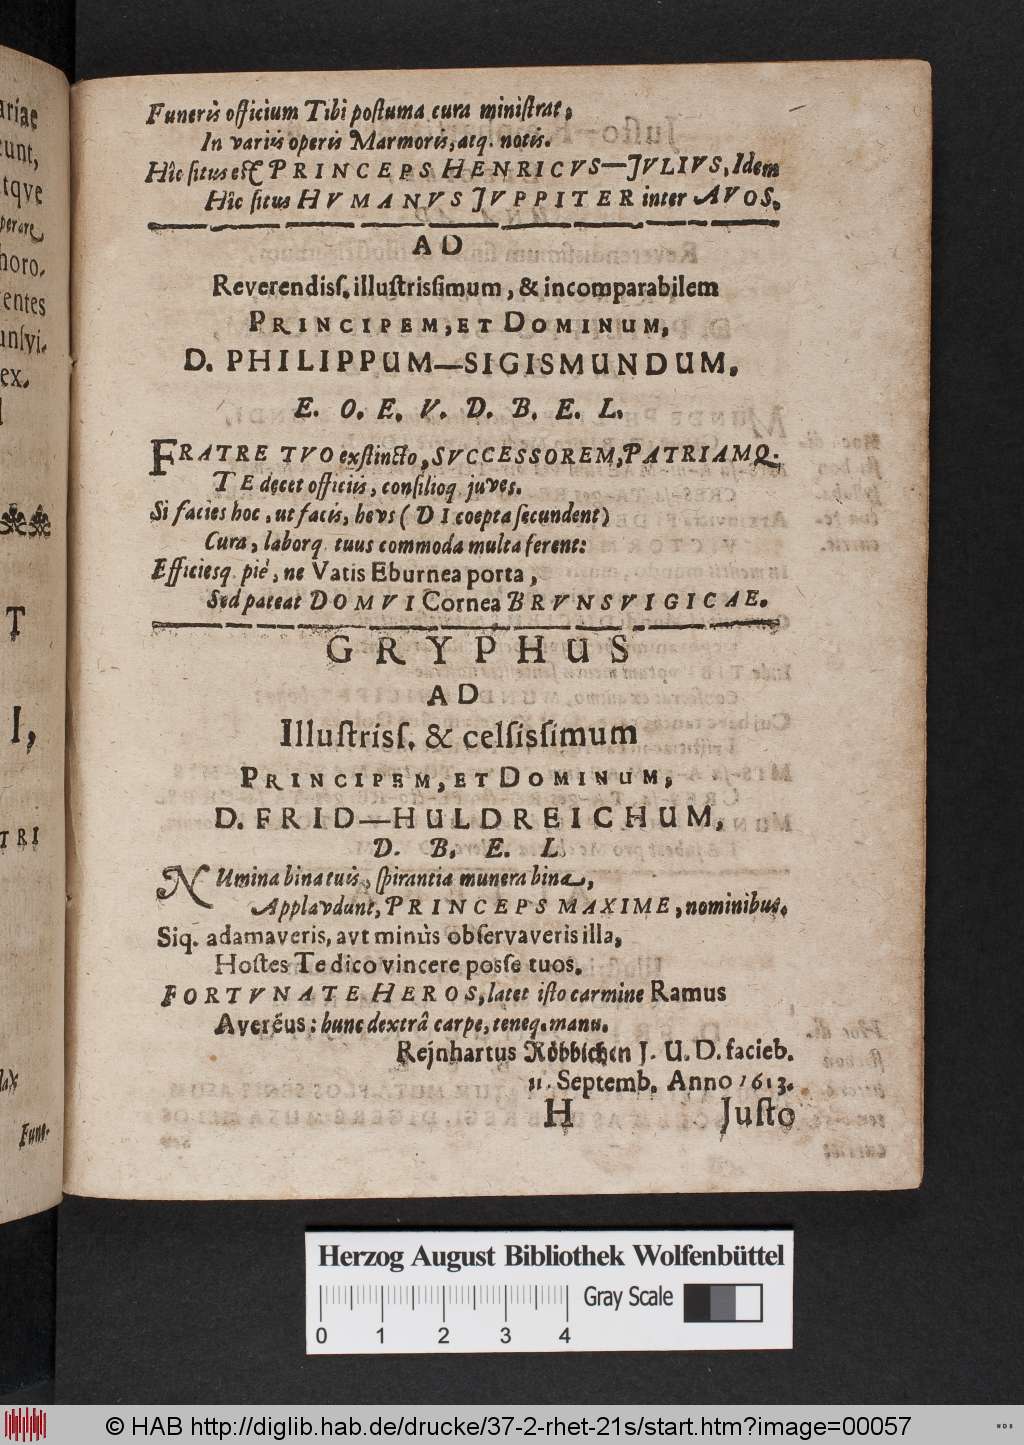 ariae
eunt,
tqve
perare
horo.
entes
unsvi.
ex.
T
I,
TRI
Fune-
Funeris officium Tibi postuma cura ministrat,
In variis operis Marmoris, atq. notis.
Hîc situs est PRINCEPS HENRICVS—JVLIVS, Idem
Hîc situs HVMANVS JVPPITER inter AVOS.
AD
Reverendiss. illustrissimum, & incomparabilem
PRINCIPEM, ET DOMINUM,
D. PHILIPPUM—SIGISMUNDUM,
E. O. E. V. D. B. E. L.
FRATRE TVO exstincto, SVCCESSOREM, PATRIAMQ.
TE decet officiis, consilioq. juves.
Si facies hoc, ut facis, hevs (DI coepta secundent)
Cura, laborq. tuus commoda multa ferent:
Efficiesq. piè, ne Vatis Eburnea porta,
Sed pateat DOMVI Cornea BRVNSVIGICAE.
GRYPHUS
AD
Illustriss. & celsissimum
PRINCIPEM, ET DOMINUM,
D. FRID—HULDREICHUM,
D. B. E. L
NUmina bina tuis, spirantia munera bina,
Applavdunt, PRINCEPS MAXIME, nominibus.
Siq. adamaveris, avt minùs observaveris illa,
Hostes Te dico vincere posse tuos.
FORTVNATE HEROS, latet isto carmine Ramus
Avereus: hunc dextrâ carpe, teneq. manu.
Rejnhartus Röbbichen J. U. D. facieb.
11. Septemb. Anno 1613.
H Justo
Herzog August Bibliothek Wolfenbüttel
Gray Scale
0 1 2 3 4
© HAB http://diglib.hab.de/drucke/37-2-rhet-21s/start.htm?image=00057